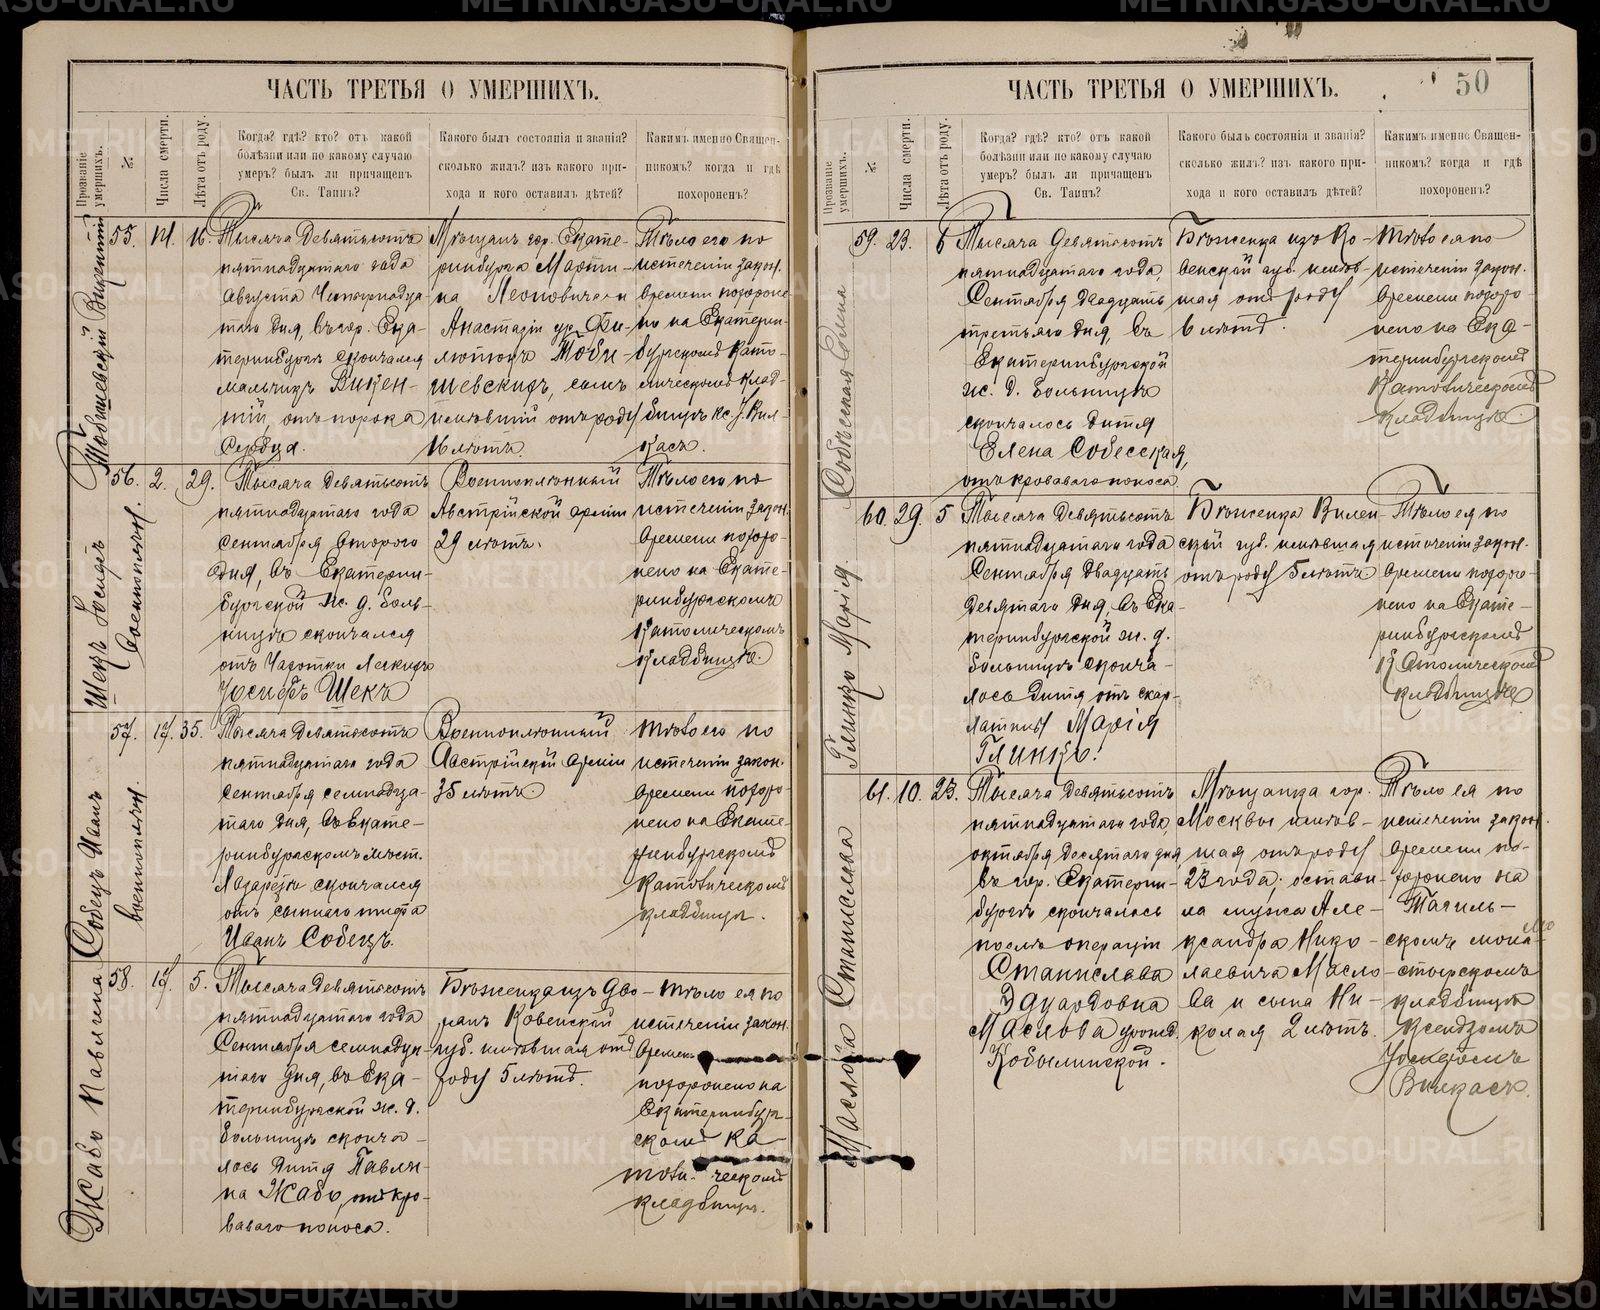 ЧАСТЬ ТРЕТЬЯ О УМЕРШИХЪ.
Прозваніе умершихъ.
№.
Числа смерти.
Лѣта отъ роду.
Когда? гдѣ? кто? отъ какой
болѣзни или по какому случаю
умеръ? былъ ли причащенъ
Св. Таинъ?
Какого былъ состоянія и званія?
сколько жилъ? изъ какого при-
хода и кого оставилъ дѣтей?
Какимъ именно Священ-
никомъ? когда и гдѣ
похороненъ?
Тобишевскій Викентій
55. 14. 16.
Тысяча Девятьсотъ
пятнадцатаго года
Августа Четырнадца-
таго дня, въ гор. Ека-
теринбургѣ скончался
мальчикъ Викен-
тій, отъ порока
Сердца.
Мѣщанъ гор. Екате-
ринбурга Марти-
на Леоновича и
Анастазіи ур. Фи-
Тоби-
шевскихъ, сынъ
имѣвшій отъ роду
16 лѣтъ.
Тѣло его по
истеченіи закон.
времени похороне-
но на Екатерин-
бургскомъ Като-
лическомъ клад-
бищѣ кс. І. Вил-
касъ.
Шекъ Іосифъ
Военноплѣн.
56. 2. 29.
Тысяча Девятьсотъ
пятнадцатаго года
Сентября Второго
дня, въ Екатерин-
бургской ж. д. боль-
ницѣ скончался
отъ Чахотки Легкихъ
Іосифъ Шекъ
Военноплѣнный
Австрійской арміи
29 лѣтъ.
Тѣло его по
истеченіи закон.
времени похоро-
нено на Екате-
ринбургскомъ
Католическомъ
Кладбищѣ.
Собецъ Иванъ
военноплѣн
57. 17. 35.
Тысяча Девятьсотъ
пятнадцатаго года
Сентября семнадца-
таго дня, въ Екате-
ринбургскомъ мѣст.
Лазаретѣ скончался
отъ сыпного тифа
Иванъ Собецъ.
Военноплѣнный
Австрійской арміи
35 лѣтъ
Тѣло его по
истеченіи закон.
времени похоро-
нено на Екате-
ринбургскомъ
католическомъ
кладбищѣ.
Жабо Павлина
58. 17. 5.
Тысяча Девятьсотъ
пятнадцатаго года
Сентября семнадца-
таго дня, въ Ека-
теринбургской ж. д.
больницѣ сконча-
лось дитя Павли-
на Жабо, отъ кро-
ваваго поноса.
Бѣженка изъ дво-
рянъ Ковенской
губ. имѣвшая отъ
роду 5 лѣтъ.
Тѣло ея по
истеченіи закон.
времен.
похоронено на
Екатеринбург-
скомъ ка-
толи-ческомъ
кладбищѣ.
ЧАСТЬ ТРЕТЬЯ О УМЕРШИХЪ.
50
Прозваніе умершихъ.
№.
Числа смерти.
Лѣта отъ роду.
Когда? гдѣ? кто? отъ какой
болѣзни или по какому случаю
умеръ? былъ ли причащенъ
Св. Таинъ?
Какого былъ состоянія и званія?
сколько жилъ? изъ какого при-
хода и кого оставилъ дѣтей?
Какимъ именно Священ-
никомъ? когда и гдѣ
похороненъ?
Собѣсская Елена
59. 23. 6
Тысяча Девятьсотъ
пятнадцатаго года,
Сентября двадцать
третьяго дня, въ
Екатеринбургской
ж. д. больницѣ
скончалось дитя
Елена Собесская,
отъ кроваваго поноса.
Бѣженка изъ Ко-
венской губ. имѣв-
шая отъ роду
6 лѣтъ.
Тѣло ея по
истеченіи закон.
времени похоро-
нено на Ека-
теринбургскомъ
Католическомъ
кладбищѣ.
Глинко Марія.
60. 29. 5
Тысяча Девятьсотъ
пятнадцатаго года
Сентября двадцать
девятаго дня, въ Ека-
теринбургской ж. д.
больницѣ сконча-
лось дитя отъ скар-
латины Марія
Глинко.
Бѣженка Вилен-
ской губ. имѣвшая
отъ роду 5 лѣтъ
Тѣло ея по
истеченіи закон.
времени похоро-
нено на Екате-
ринбургскомъ
Католическомъ
кладбищѣ
Маслова Станислава
61. 10. 23.
Тысяча Девятьсотъ
пятнадцатаго года,
октября десятаго дня
въ гор. Екатерин-
бургѣ скончалась
послѣ операціи
Станислава
Эдуардовна
Маслова урожд.
Кобылинской.
Мѣщанка гор.
Москвы имѣв-
шая отъ роду
23 года; остави-
ла мужа Але-
ксандра Нико-
лаевича Масло-
ва и сына Ни-
колая 2 лѣтъ.
Тѣло ея по
истеченіи закон.
времени по-
хоронено на
Тагиль-
скомъ мона-
стырскомъ
кладбищѣ
Ксендзомъ
Іосифомъ
Вилкасъ.
METRIKI.GASO-URAL.RU